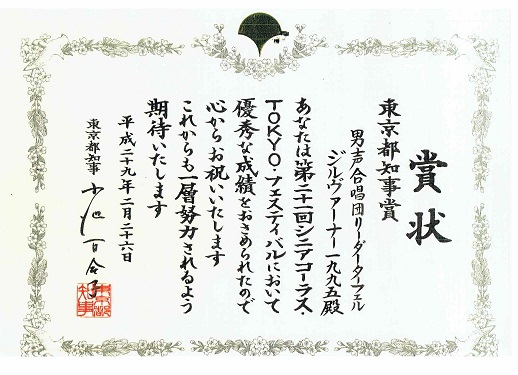 賞状
東京都知事賞
男声合唱団リーダーターフェル
ジルヴァーナー一九九五殿
あなたは第二十一回シニアコーラス・
TOKYO・フェスティバルにおいて
優秀な成績をおさめられたので
心からお祝いいたします
これからも一層努力されるよう
期待いたします
平成二十九年二月二十六日
東京都知事 小池百合子
東京都知事